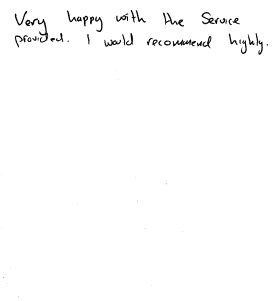 Very happy with the Service
provided. I would recommend highly.